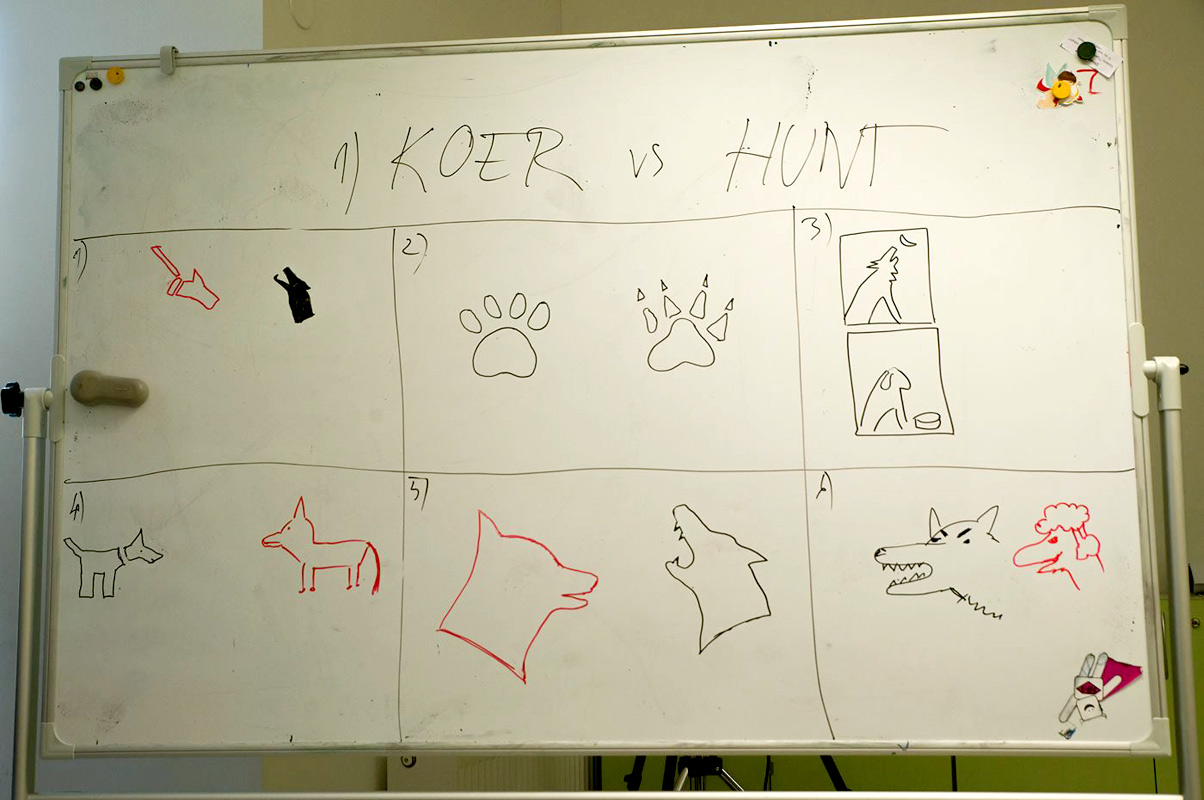 1) KOER vs HUNT
1)
2)
3)
4)
5)
6)